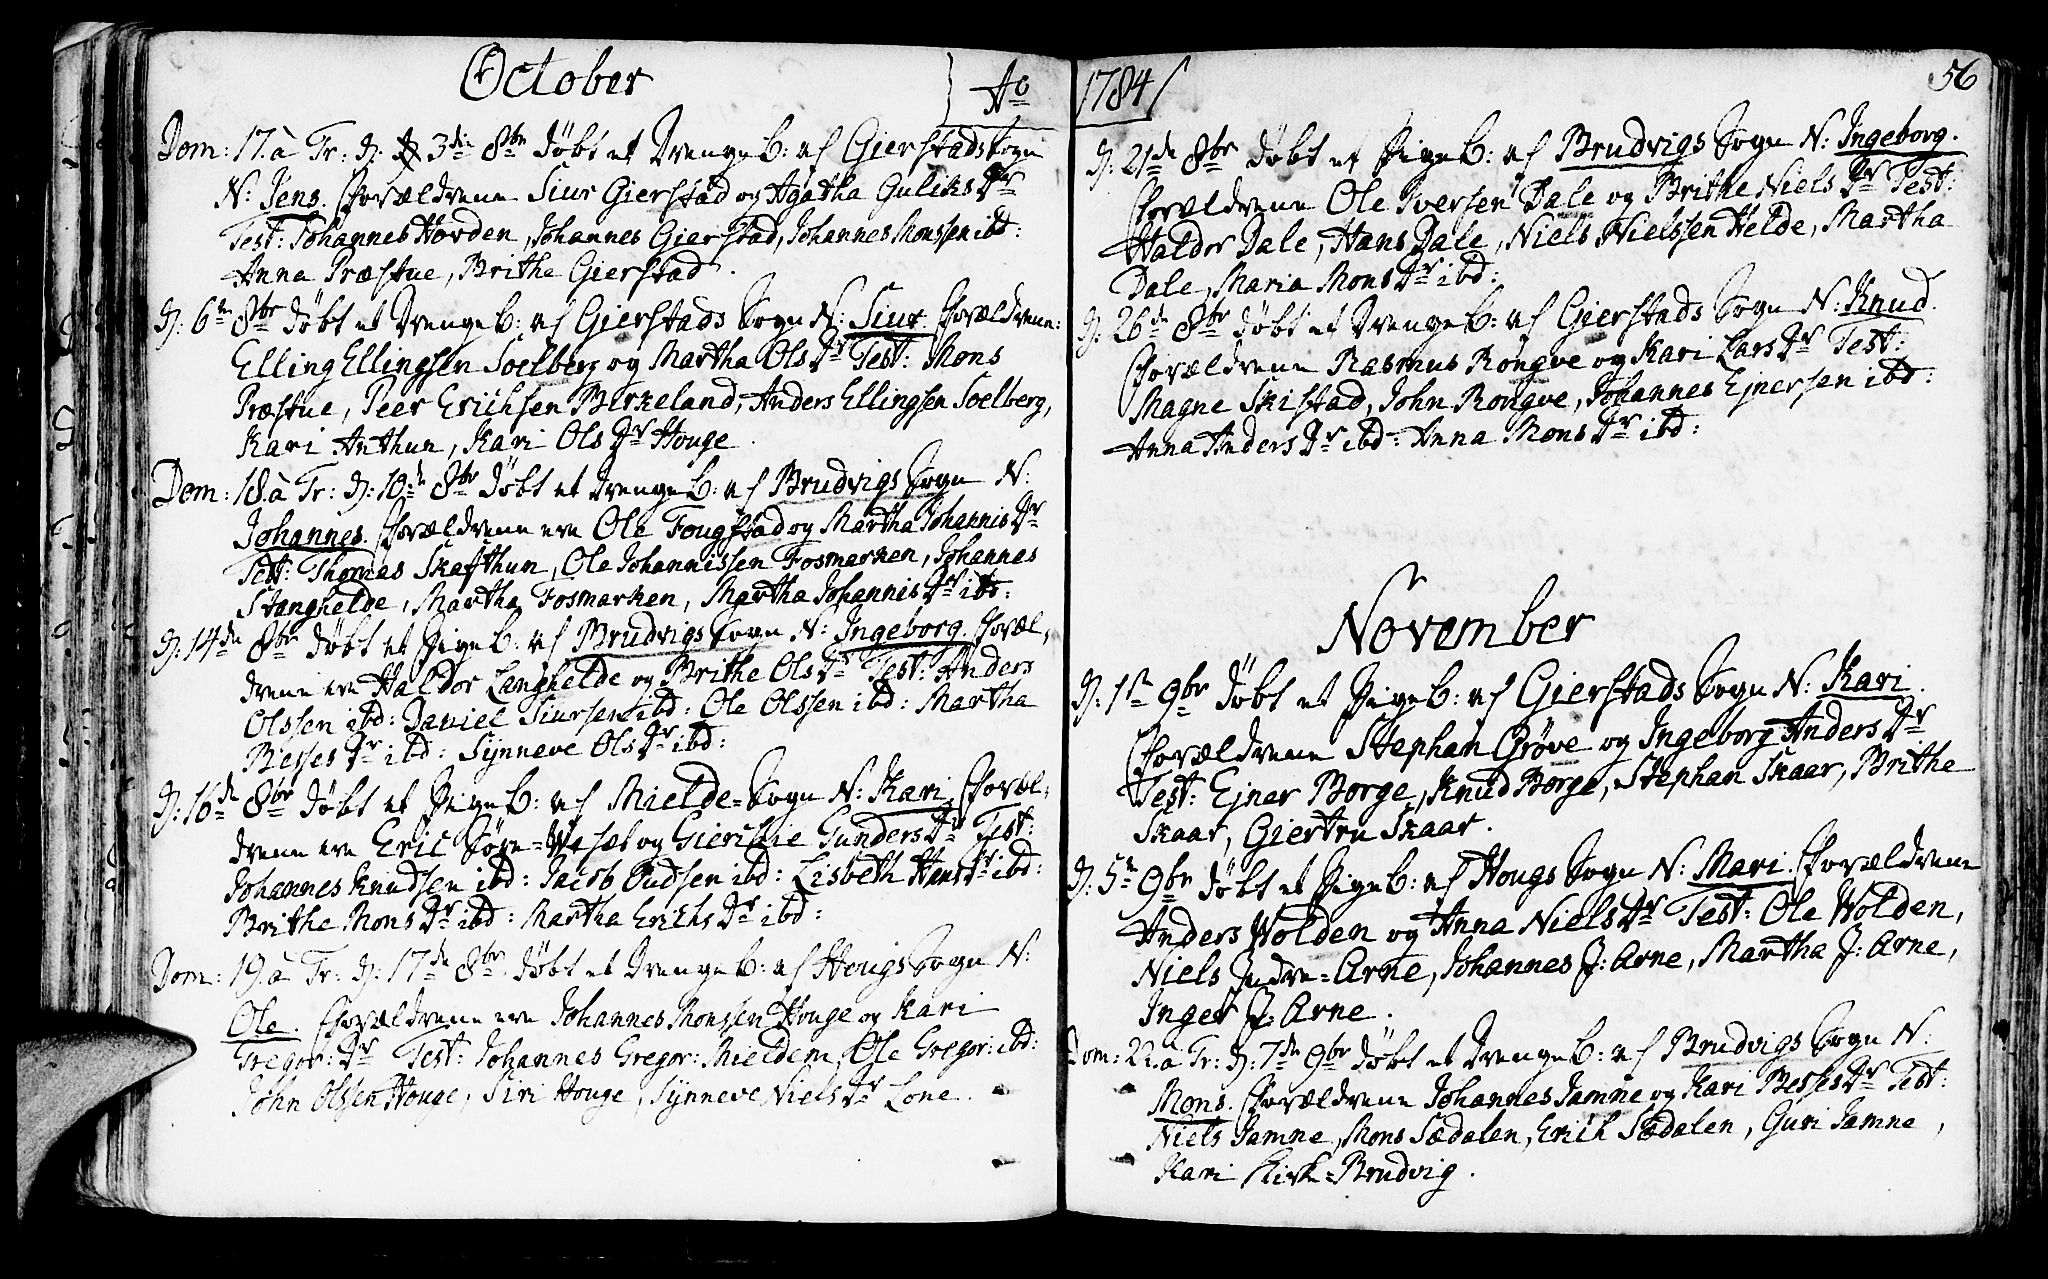 October
Ao
Dom: 17. à Tr: D: 3die 8br døbt et DrengeB: af Gierstads Sogn
N: Jens. Forældrene Siur Gierstad og Agatha Guliks Dr
Test: Johannes Hovden, Johannes Gierstad, Johannes Monssen ibd:
Anna Præstue, Brithe Gierstad.
D: 6te 8br døbt et DrengeB: af Gierstads Sogn N: Siur. Forældrene:
Elling Ellingsen Soelberg og Martha Ols Dr Test: Mons
Præstue, Peer Erichsen Birkeland, Anders Ellingsen Soelberg,
Kari Anthun, Kari Ols Dr Houge.
Dom: 18. à Tr: D: 10de 8br døbt et DrengeB: af Brudvigs Sogn N:
Johannes. Forældrene ere Ole Fougstad og Martha Johannis Dr
Test: Thomas Skafthun, Ole Johannissen Fosmarken, Johannes
Stanghelde, Martha Fosmarken, Martha Johannis Dr ibd:
D: 14de 8br døbt et PigeB: af Brudvigs Sogn N: Ingeborg. Foræl-
drene ere Haldor Langhelde og Brithe Ols Dr Test: Anders
Olssen ibd: Daniel Siursen ibd: Ole Olssen ibd: Martha
Besses Dr ibd: Synneve Ols Dr ibd:
D: 16de 8br døbt et PigeB: af Mielde-Sogn N: Kari. Foræl-
drene ere Eric Søre- og Giertrue Gunders Dr Test:
Johannes Knudsen ibd: Jacob Oudsen ibd: Lisbeth Hans Dr ibd:
Brithe Mons Dr ibd: Martha Erichs Dr ibd:
Dom: 19. à Tr: D: 17de 8br døbt et DrengeB: af Hougs Sogn N:
Ole. Forældrene ere Johannes Monssen Houge og Kari
Gregor: Dr Test: Johannes Gregor: Mieldem, Ole Gregor: ibd:
John Olssen Houge, Siri Houge, Synneve Niels Dr Lone.
1784
56
D: 21de 8br døbt et PigeB: af Brudvigs Sogn N: Ingeborg.
Forældrene Ole Iversen Dale og Brithe Niels Dr Test:
Haldor Dale, Hans Dale, Niels Nielssen Helde, Martha
Dale, Maria Mons Dr ibd:
D: 26de 8br døbt et DrengeB: af Gierstads Sogn N: Knud.
Forældrene Rasmus Rongve og Kari Lars Dr Test:
Magne Skistad, John Rongve, Johannes Ejnersen ibd:
Anna Anders Dr ibd: Anna Mons Dr ibd:
November
D: 1st 9br døbt et PigeB: af Gierstads Sogn N: Kari.
Forældrene Stephan Grøve og Ingeborg Anders Dr
Test: Ejner Borge, Knud Borge, Stephan Skaar, Brithe
Skaar, Giertru Skaar.
D: 5te 9br døbt et PigeB: af Hougs Sogn N: Mari. Forældrene
Anders Wolden og Anna Niels Dr Test: Ole Wolden,
Niels Indre-Arne, Johannes J: Arne, Martha J: Arne,
Inger J: Arne.
Dom: 22. à Tr: D: 7de 9br døbt et DrengeB: af Brudvigs Sogn N:
Mons. Forældrene Johannes Jamne og Kari Besses Dr Test:
Niels Jamne, Mons Sædalen, Erich Sædalen, Guri Jamne,
Kari Kirk-Brudvig.